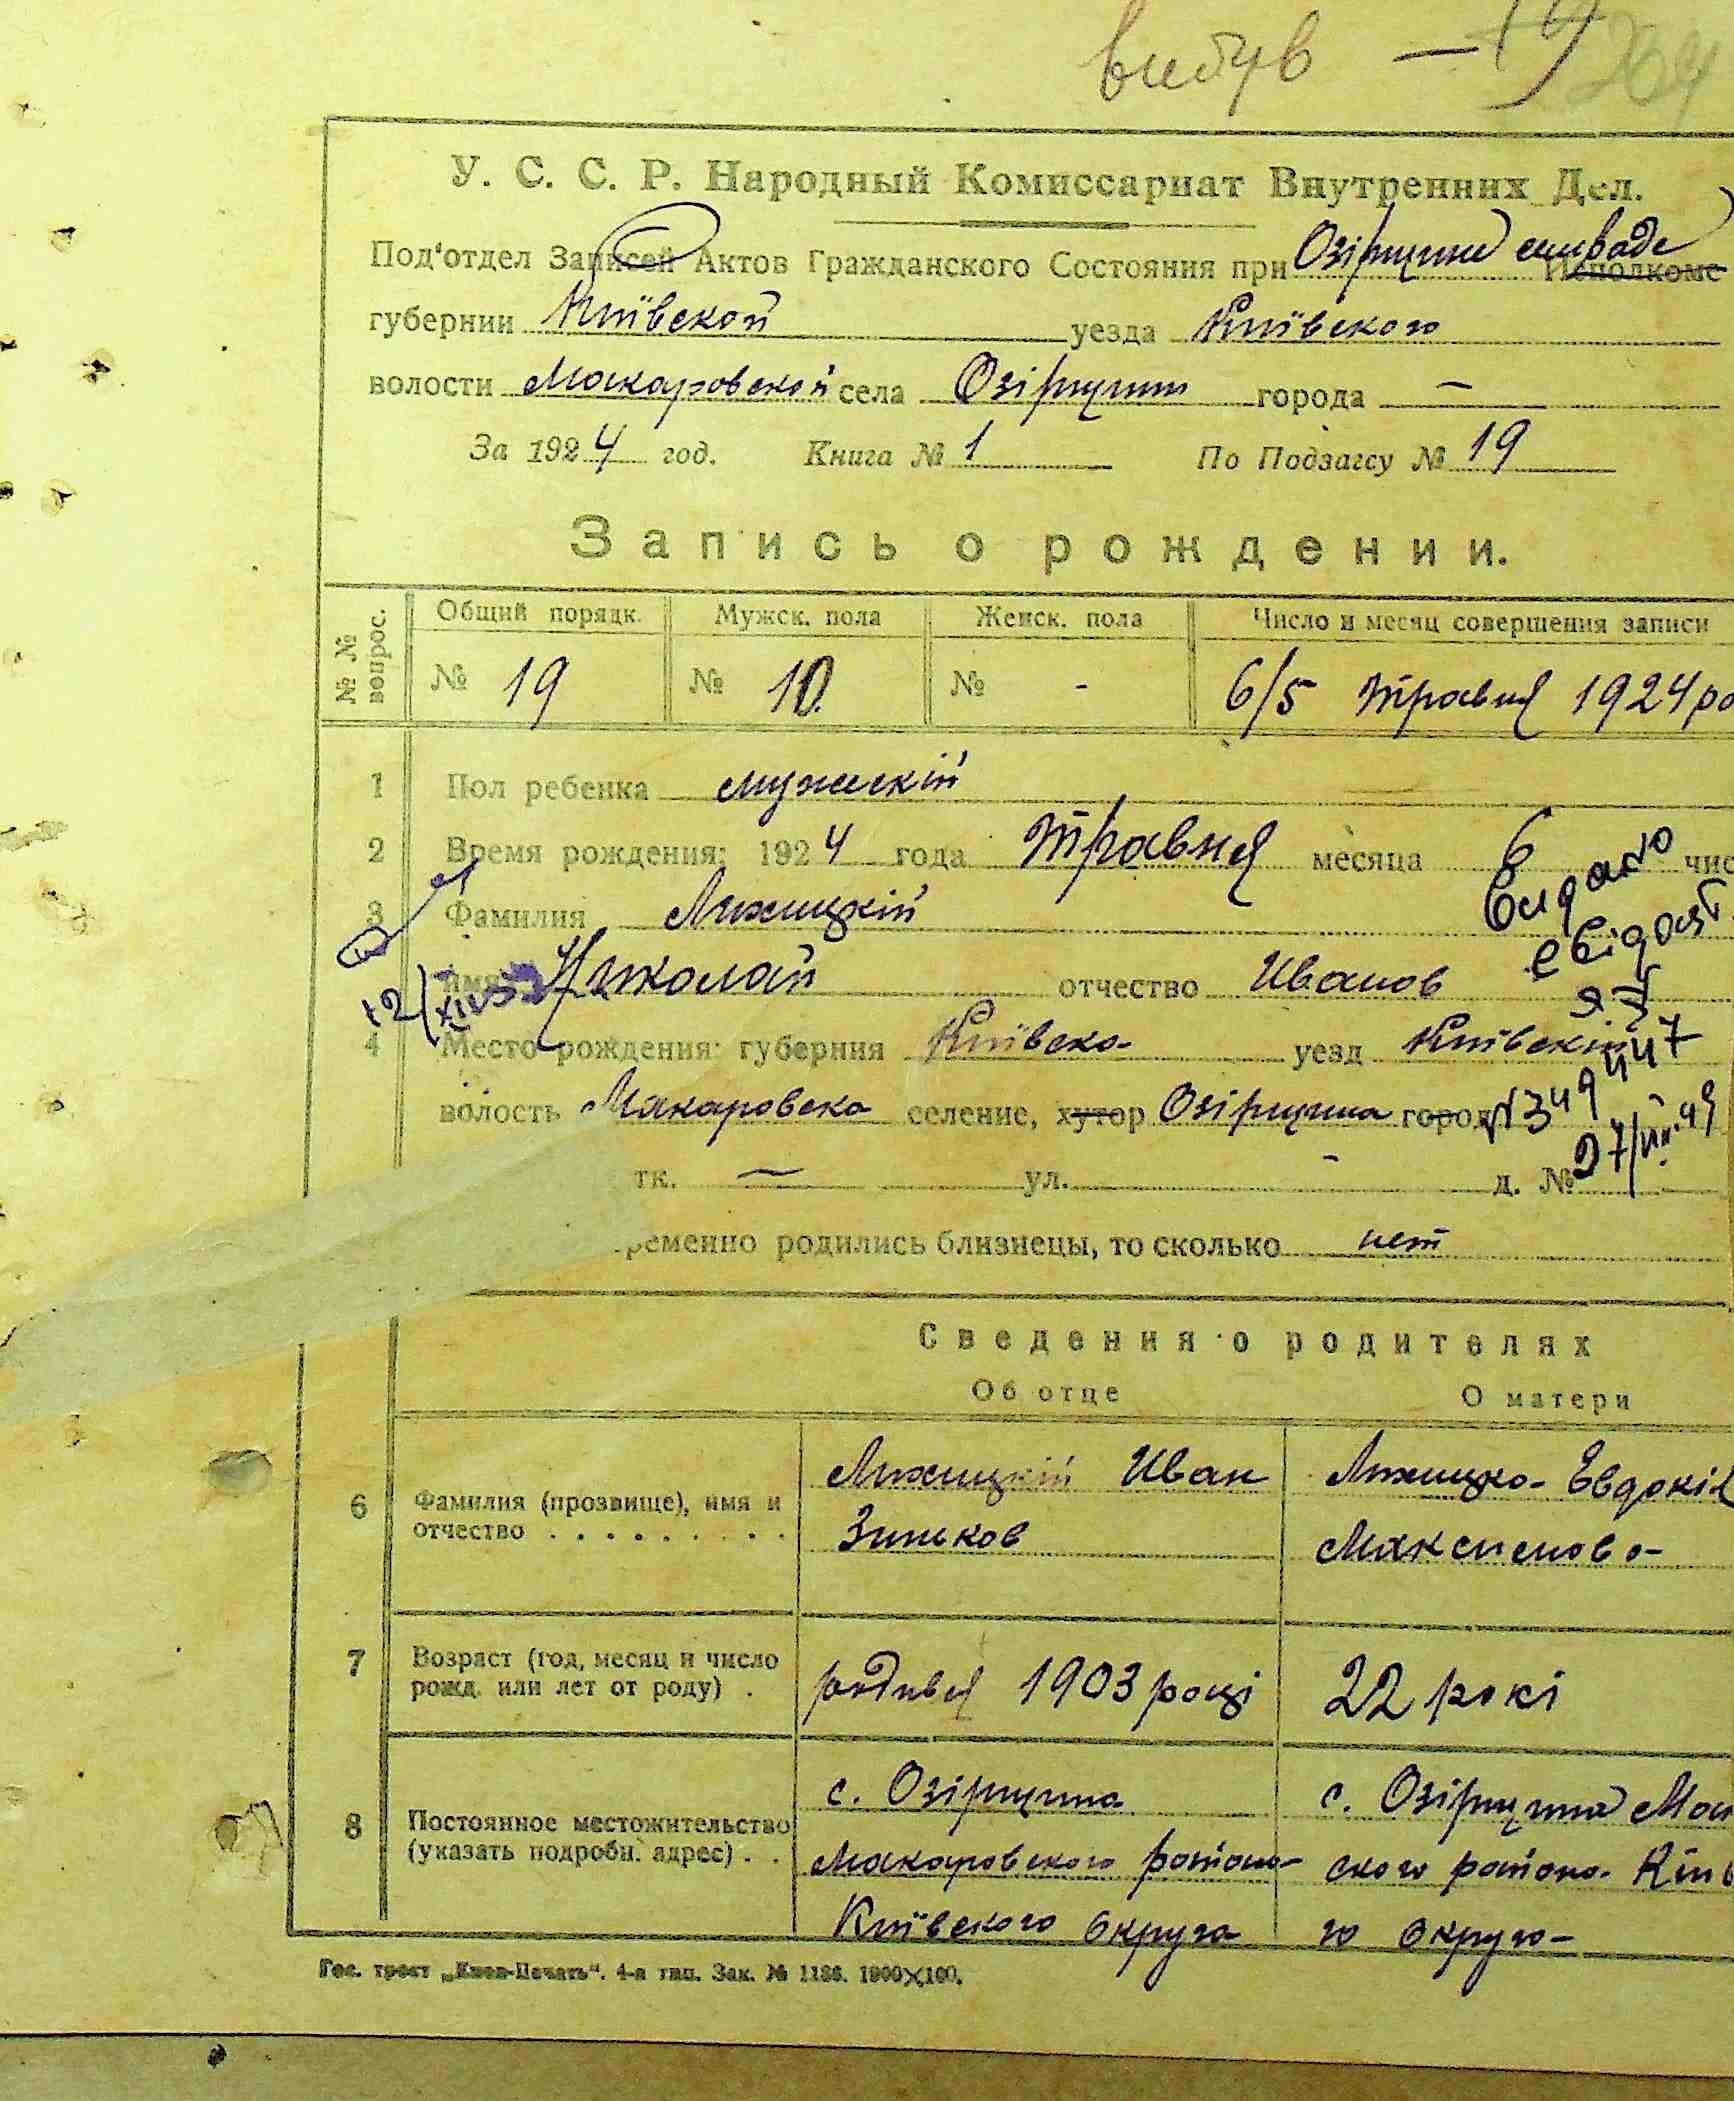 вибув — 19
У. С. С. Р. Народный Комиссариат Внутренних Дел.
Под'отдел Записей Актов Гражданского Состояния при Озірщині сільраде Исполкоме
губернии Київской уезда Київского
волости Макаровской села Озірщини города —
За 1924 год. Книга № 1 По Подзагсу № 19
Запись о рождении.
№ № вопрос. Общий порядк. Мужск. пола Женск. пола Число и месяц совершения записи
№ 19 № 10. № - 6/5 Травня 1924 ро
1 Пол ребенка мужескій
2 Время рождения: 1924 года Травня месяца 6 чис
Видано
3 Фамилия Лижицкій
свідоцт.
имя Николай отчество Иванов
4 Место рождения: губерния Київска уезд Київскій
волость Макаровска селение, хутор Озірщина город
тк. — ул. - д. №
27/VII.49
ременно родились близнецы, то сколько нет
Сведения о родителях
Об отце О матери
6 Фамилия (прозвище), имя и отчество . . . . . . . . .
Лижицкій Иван
Зиньков
Лижицка Евдокія
Максимова
7 Возраст (год, месяц и число рожд. или лет от роду) .
родився 1903 році
22 рокі
8 Постоянное местожительство (указать подробн. адрес) . .
с. Озірщина
Макаровского района
Київского округа
с. Озірщина Мак
ского района Київ
го округа
Гос. трест „Киев-Печать". 4-я тип. Зак. № 1186. 1000×100.